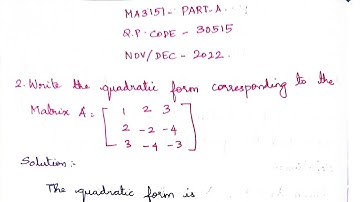 MA3151 - PART-A.
Q.P. CODE - 30515
NOV/DEC - 2022.
2. Write the quadratic form corresponding to the
Matrix A = [ 1 2 3
2 -2 -4
3 -4 -3 ]
Solution :-
The quadratic form is